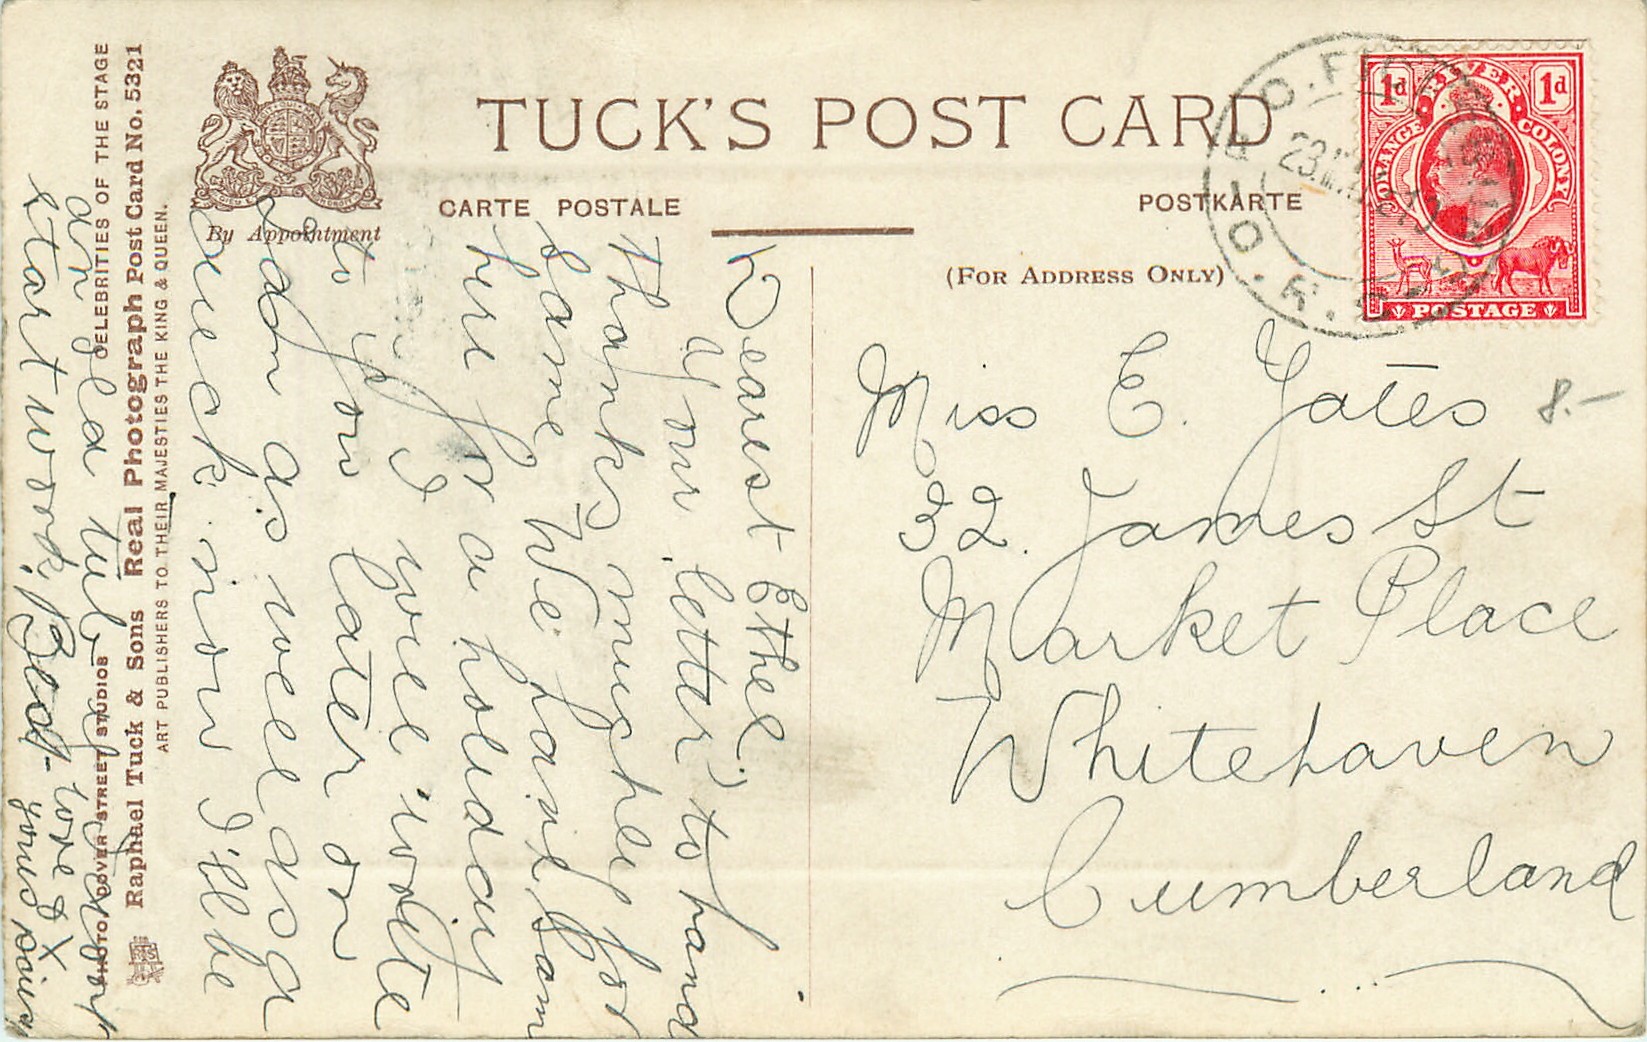 TUCK'S POST CARD
CARTE POSTALE
POSTKARTE
By Appointment
(FOR ADDRESS ONLY)
1d RIVER 1d
ORANGE COLONY
POSTAGE
Miss E. Yates
32. James St
Market Place
Whitehaven
Cumberland
8.-
Dearest Ethel,
Your letter to hand
Thanks muchly for
same. We have
here for a holiday
I will write
to you later on
as well as
now I'll be
start work. Best love &
yours
CELEBRITIES OF THE STAGE
PHOTO DOVER STREET STUDIOS
Raphael Tuck & Sons Real Photograph Post Card No. 5321
ART PUBLISHERS TO THEIR MAJESTIES THE KING & QUEEN.